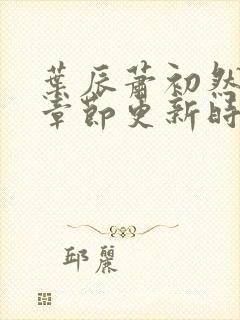 葉辰蕭初然
章節更新時
邱麗